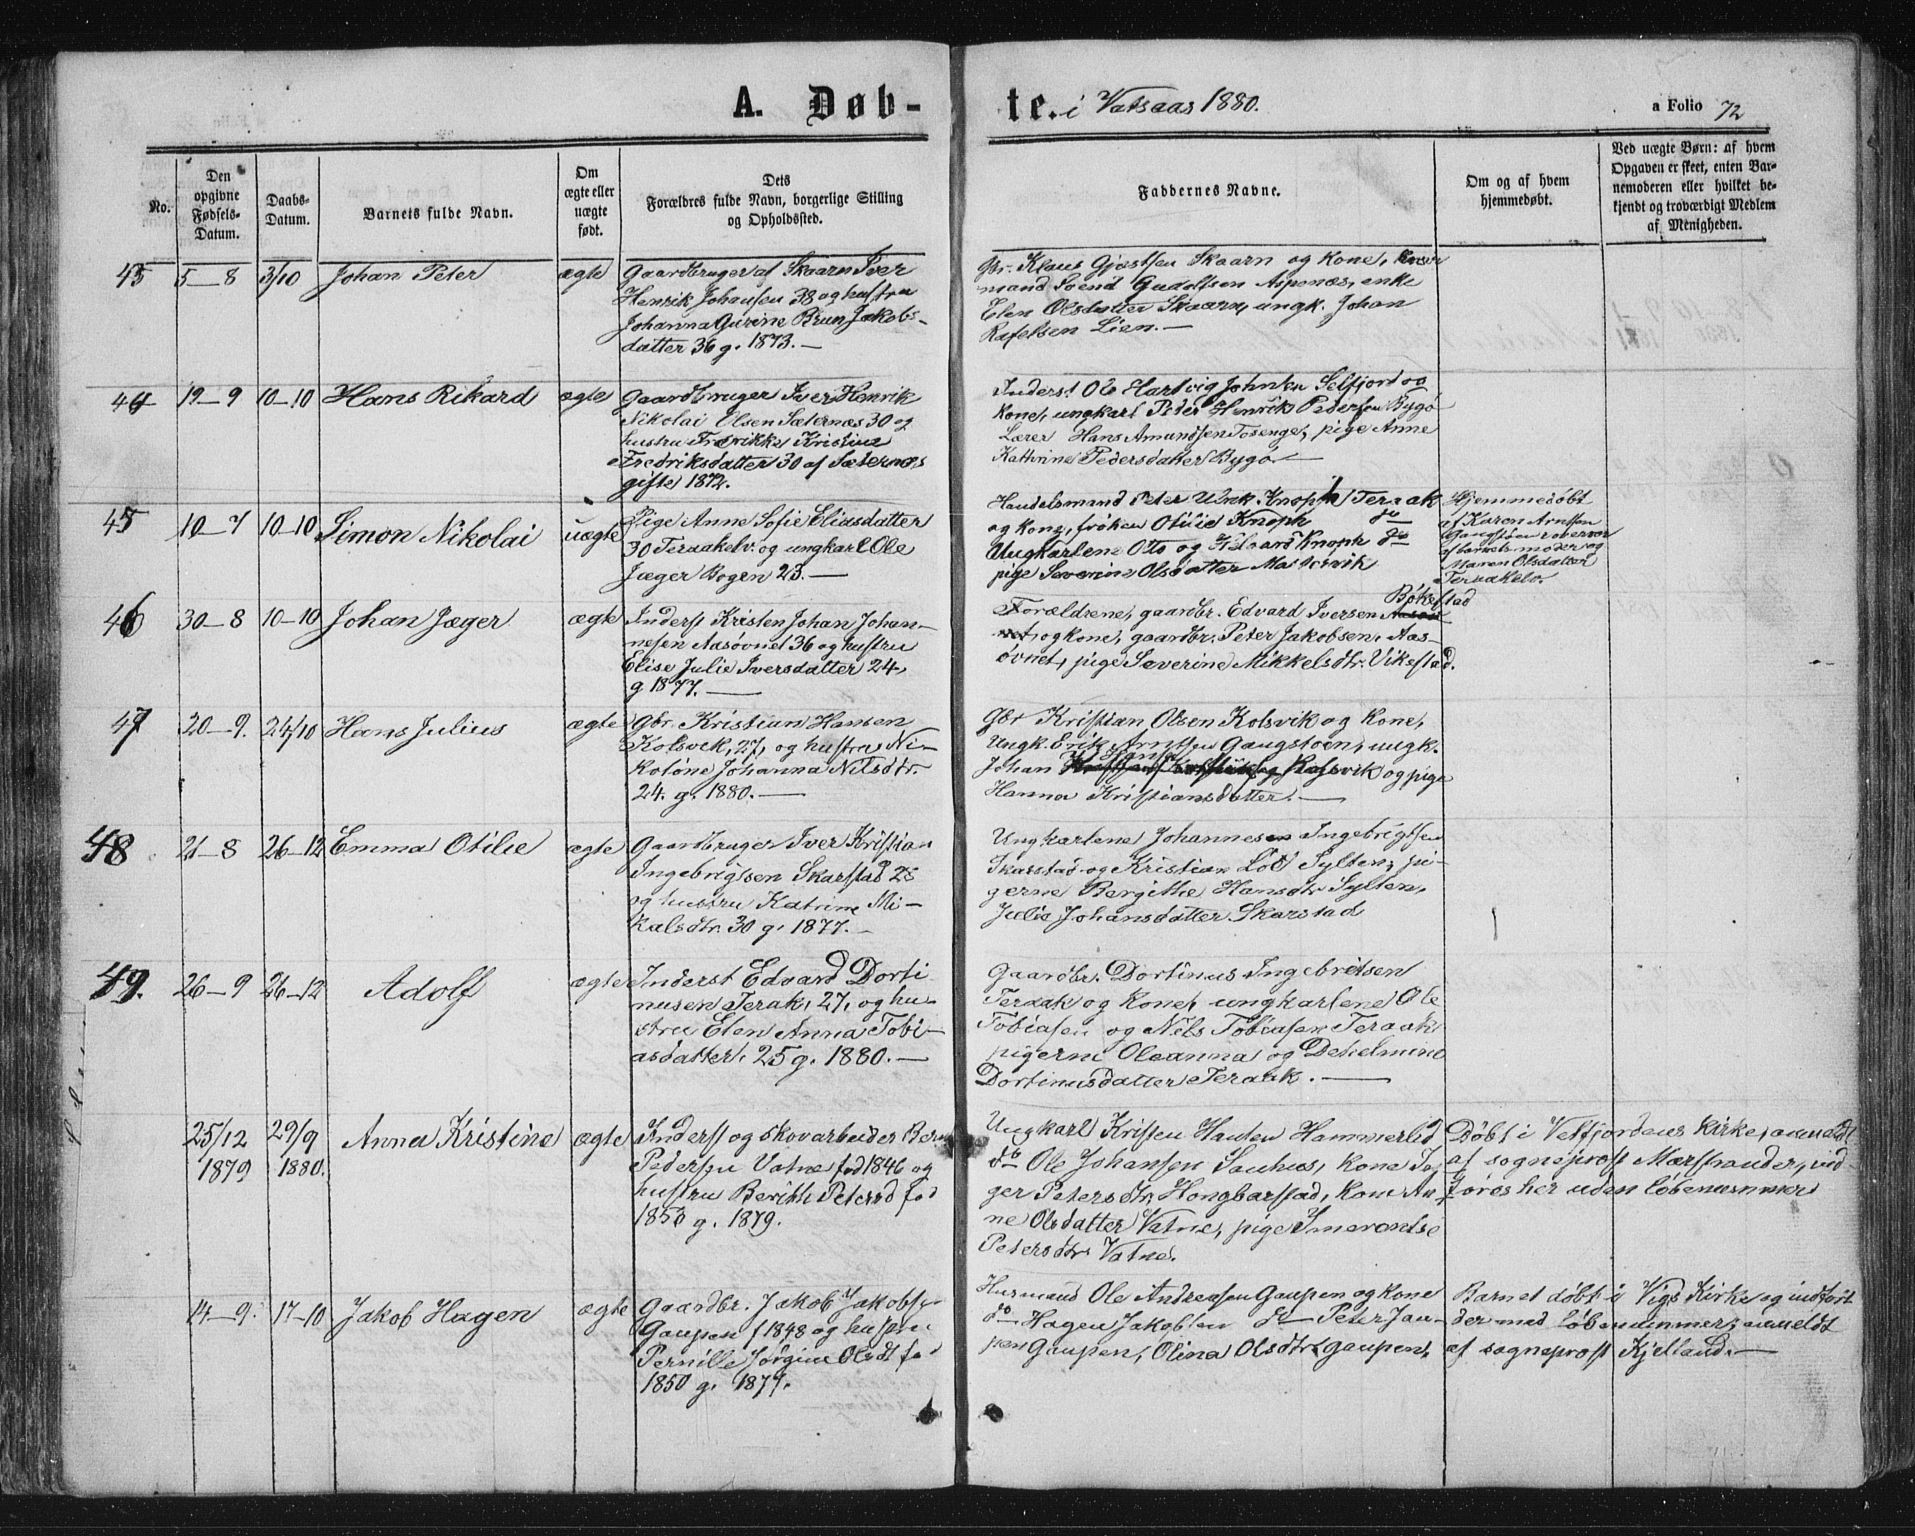 A. Døb-
te. i Vatsaas 1880.
a Folio 72
No.
Den
opgivne
Fødsels-
Datum.
Daabs-
Datum.
Barnets fulde Navn.
Om
ægte eller
uægte
født.
Dets
Forældres fulde Navn, borgerlige Stilling
og Opholdssted.
Faddernes Navne.
Om og af hvem
hjemmedøbt.
Ved uægte Børn: af hvem
Opgaven er skeet, enten Bar-
nemoderen eller hvilket be-
kjendt og troværdigt Medlem
af Menigheden.
43 5-8 3/10 Johan Peter ægte
Gaardbruger af Skaarn Iver
Henrik Johansen 38 og hustru
Johanna Gurine Brun Jakobs-
datter 36 g. 1873.—
Gbr. Klaus Gjertsen Skaarn og kone,
mand Svend Gudolfsen Aspenæs, enke
Elen Olsdatter Skaarn, ungk. Johan
Rafelsen Lien.—
44 19-9 10-10 Hans Rikard ægte
Gaardbruger Iver Henrik
Nikolai Olsen Sæternæs 30 og
hustru Fredrikke Kristine
Fredriksdatter 30 af Sæternæs
gifte 1872.
Inderst Ole Hartvig Johnsen Selfjord og
kone, ungkarl Peter Henrik Pedersen Bygø
Lærer Hans Amundsen Tosenge, pige Anne
Kathrine Pedersdatter Bygø.—
45 10-7 10-10 Simon Nikolai uægte
Pige Anne Sofie Eliasdatter
30 Teraakelv. og ungkarl Ole
Jæger Bogen 23.—
Handelsmand Peter Knoph Teraak
og kone, frøken Otilie Knoph do
Ungkarlene Otto og Edvard Knoph do
pige Severine Olsdatter
Hjemmedøbt
af Karen Arntsen
Gangstøen
af barnets moder og
Maren Olsdatter
Teraakelv.
46 30-8 10-10 Johan Jæger ægte
Inderst Kristen Johan Johan-
nesen Aasøvnet 36 og hustru
Elise Julie Iversdatter 24,
g 1877.—
Bøkestad
Forældrene, gaardbr. Edvard Iversen
og kone, gaardbr. Peter Jakobsen, Aas-
øvnet, pige Severine Mikkelsdtr. Vikestad.
47 20-9. 24/10 Hans Julius ægte
Gbr. Kristian Hansen
Kolsvik, 27, og hustru Ni-
koline Johanna Nilsdtr.
24. g. 1880.—
Gbr Kristian Olsen Kolsvik og kone,
Ungk. Erik Arntsen Gangstøen, ungk.
Johan Hans Kolsvik og pige
Hanna Kristiansdatter.—
48 21-8 26-12 Emma Otilie ægte
Gaardbruger Iver Kristian
Ingebrigtsen Skarstad 28
og hustru Katrine Mi-
kalsdtr. 30 g. 1877.—
Ungkarlene Johannesen Ingebrigtsen
Skarstad og Kristian Sylten, pi-
gerne Bergithe Hansdtr Sylten,
Julie Johansdatter Skarstad
49. 26-9 26-12 Adolf ægte
Inderst Edvard Dorti
nusen Terak, 27, og hu-
stru Elen Anna Tobi-
asdatter, 25 g. 1880.—
Gaardbr. Dortinus Ingebritsen
Teraak og kone, ungkarlene Ole
Tobiasen og Nils Tobiasen Teraak,
pigerne Oleanna og Detelmine
Dortinusdatter Teraak.—
25/12
1879
29/9
1880.
Anna Kristine ægte
Inderst og skovarbeider Bernt
Pedersen Vatne fød 1846 og
hustru Berith Petersd fød
1850 g. 1879.
Ungkarl Kristen Hansen Hammerlid
do Ole Johansen Sauhus, kone In-
ger Petersdtr. Hongbarstad, kone An-
ne Olsdatter Vatne, pige Emerentse
Petersdtr. Vatne.
Døbt i Velfjordens kirke, anmeldt
af sogneprest Marstrander, ind-
føres her uden løbenummer
14-9. 17-10 Jakob Hagen ægte
Gaardbr. Jakob Jakobsen
Gaupen f 1848 og hustru
Pernille Jørgine Olsdt fød
1850 g. 1874.
Husmand Ole Andreasen Gaupen og kone
do Hagen Jakobsen do Peter Jan-
Gaupen, Olina Olsdtr. Gaupen.
Barnet døbt i Vigs Kirke og indført
der med løbenummer, anmeldt
af sogneprest Kjelland.—